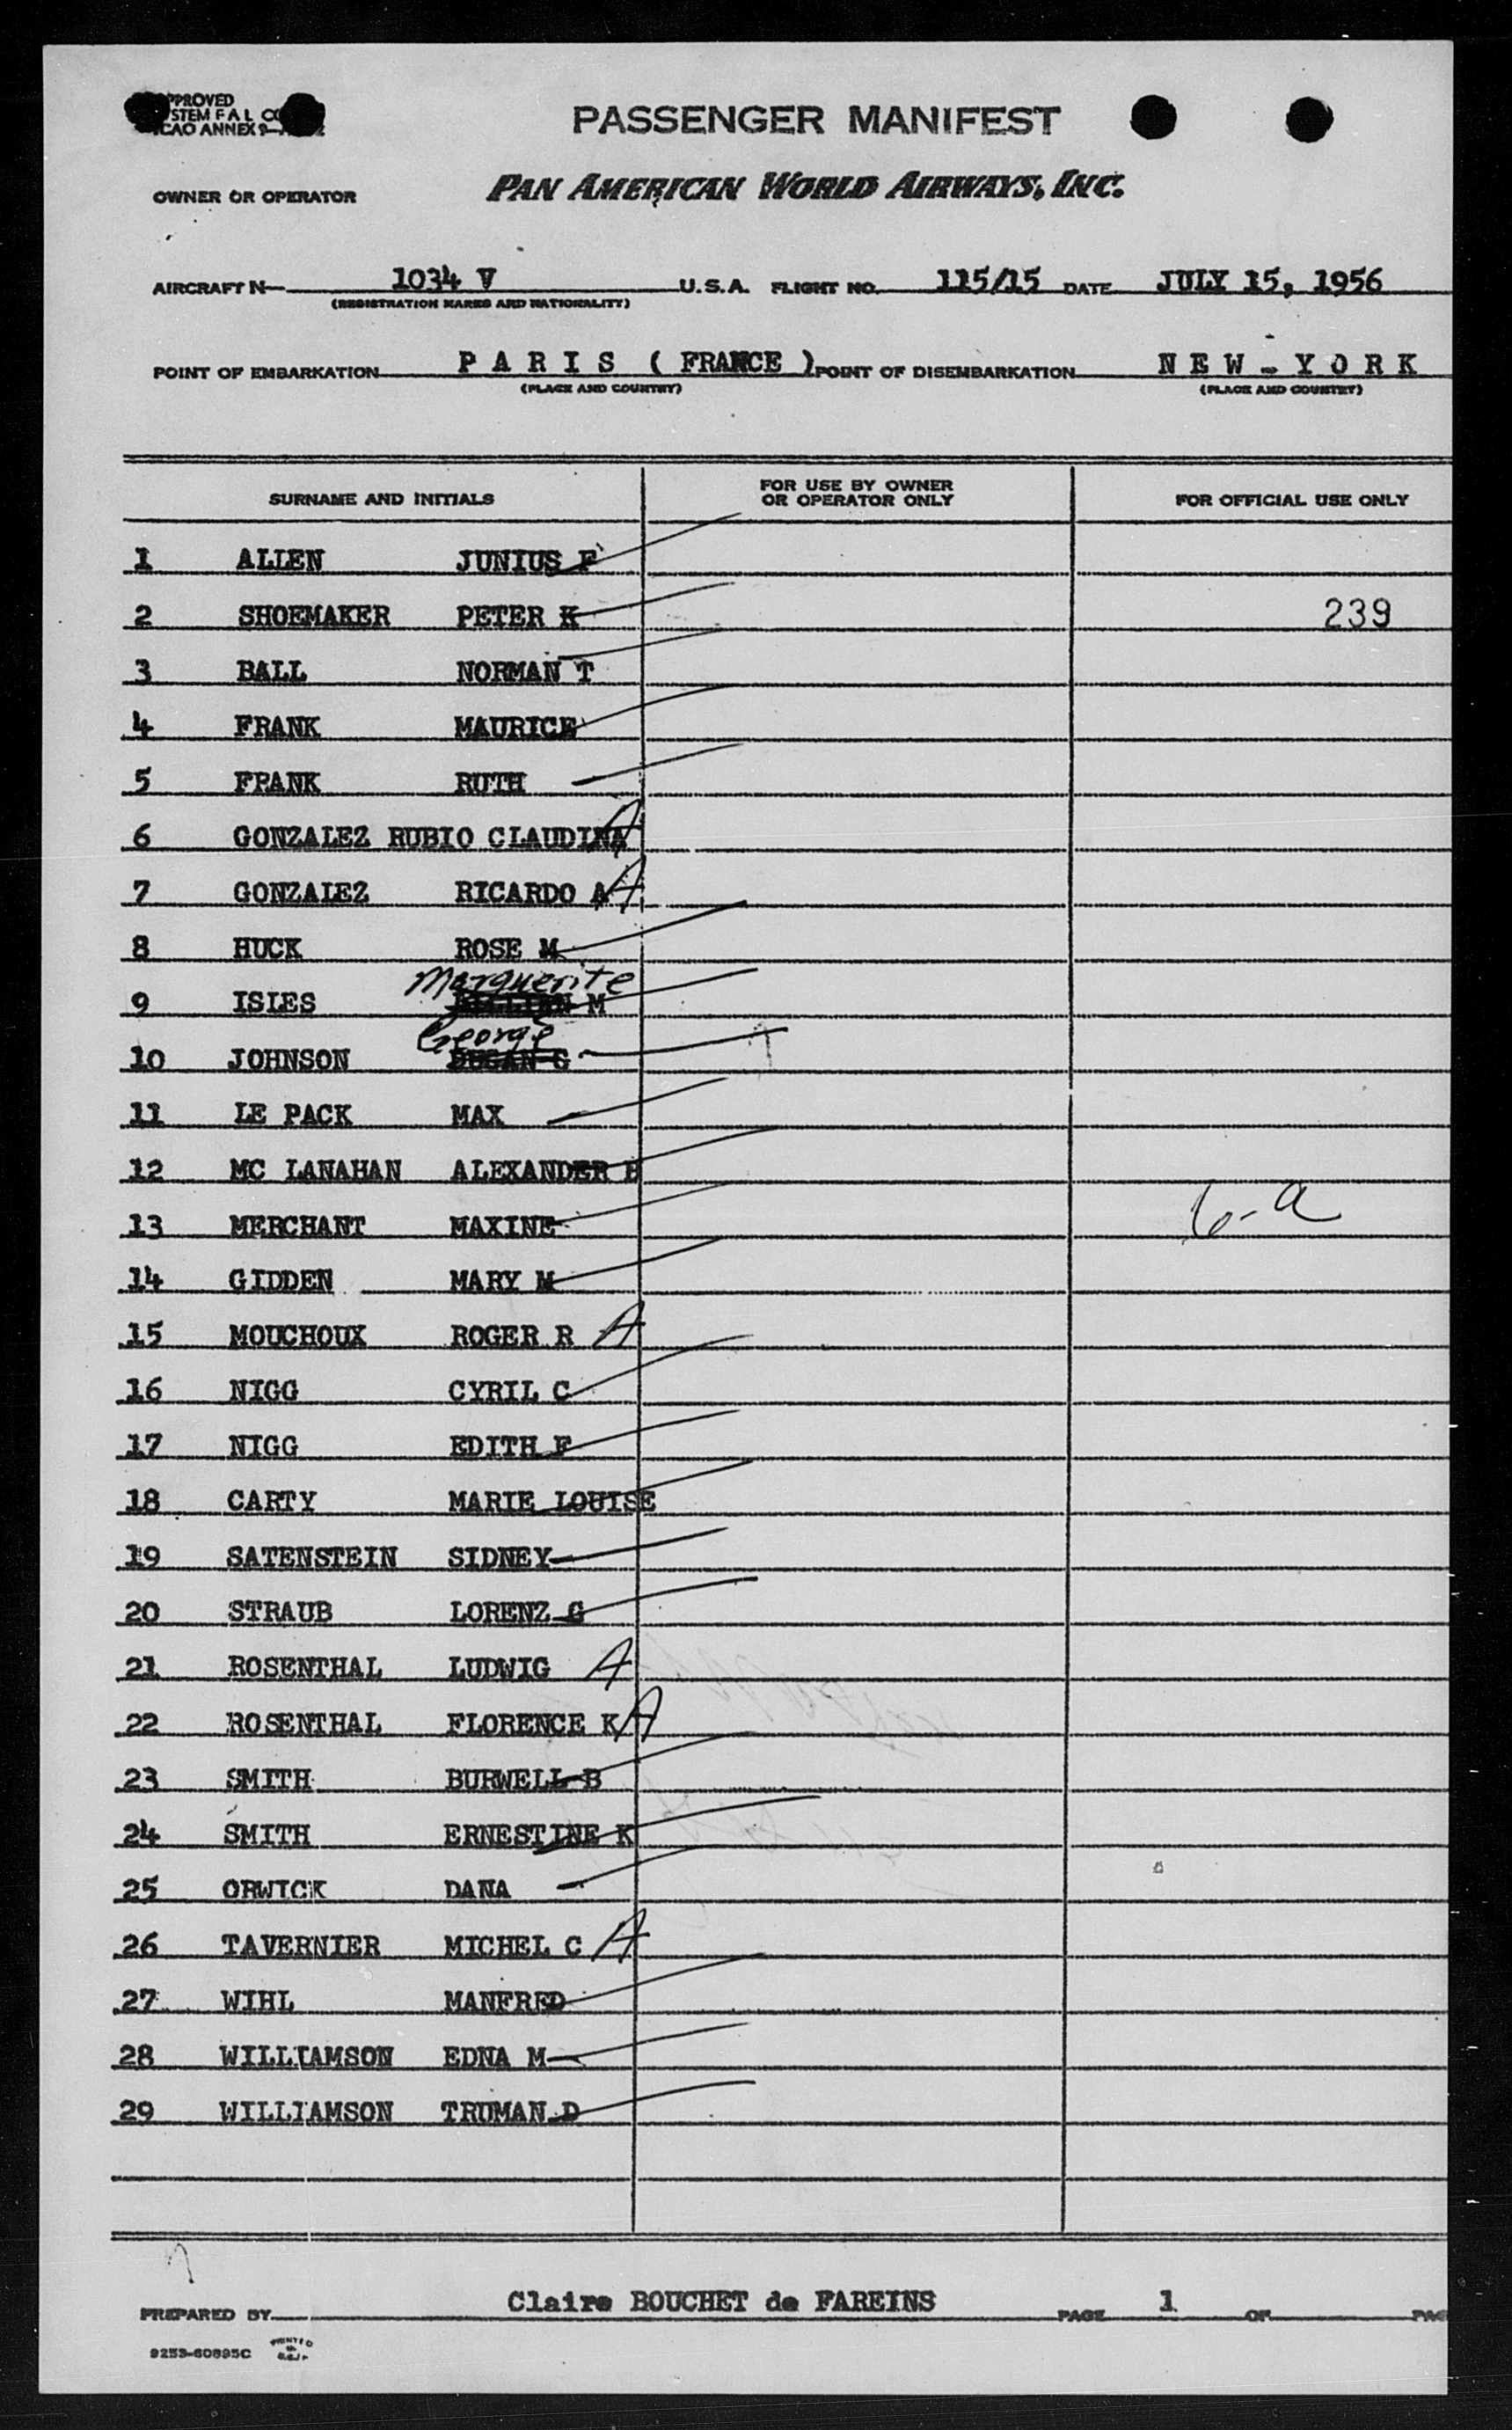 PPROVED
STEM F A L CO
CAO ANNEX 9
PASSENGER MANIFEST
OWNER OR OPERATOR PAN AMERICAN WORLD AIRWAYS, INC.
AIRCRAFT N 1034 V U.S.A. FLIGHT NO. 115/15 DATE JULY 15, 1956
(REGISTRATION MARKS AND NATIONALITY)
POINT OF EMBARKATION P A R I S ( FRANCE ) POINT OF DISEMBARKATION N E W - Y O R K
(PLACE AND COUNTRY) (PLACE AND COUNTRY)
SURNAME AND INITIALS FOR USE BY OWNER OR OPERATOR ONLY FOR OFFICIAL USE ONLY
1 ALLEN JUNIUS F
2 SHOEMAKER PETER K 239
3 BALL NORMAN T
4 FRANK MAURICE
5 FRANK RUTH
6 GONZALEZ RUBIO CLAUDINA A
7 GONZALEZ RICARDO A A
8 HUCK ROSE M
Marguerite
9 ISLES M
George
10 JOHNSON DUGAN G
11 LE PACK MAX
12 MC LANAHAN ALEXANDER H
13 MERCHANT MAXINE 6-a
14 GIDDEN MARY M
15 MOUCHOUX ROGER R A
16 NIGG CYRIL C
17 NIGG EDITH F
18 CARTY MARIE LOUISE
19 SATENSTEIN SIDNEY
20 STRAUB LORENZ G
21 ROSENTHAL LUDWIG A
22 ROSENTHAL FLORENCE K A
23 SMITH BURWELL B
24 SMITH ERNESTINE K
25 ORWICK DANA
26 TAVERNIER MICHEL C A
27 WIHL MANFRED
28 WILLIAMSON EDNA M
29 WILLIAMSON TRUMAN D
PREPARED BY Claire BOUCHET de FAREINS PAGE 1 OF PAG
9253-60895C PRINTED IN